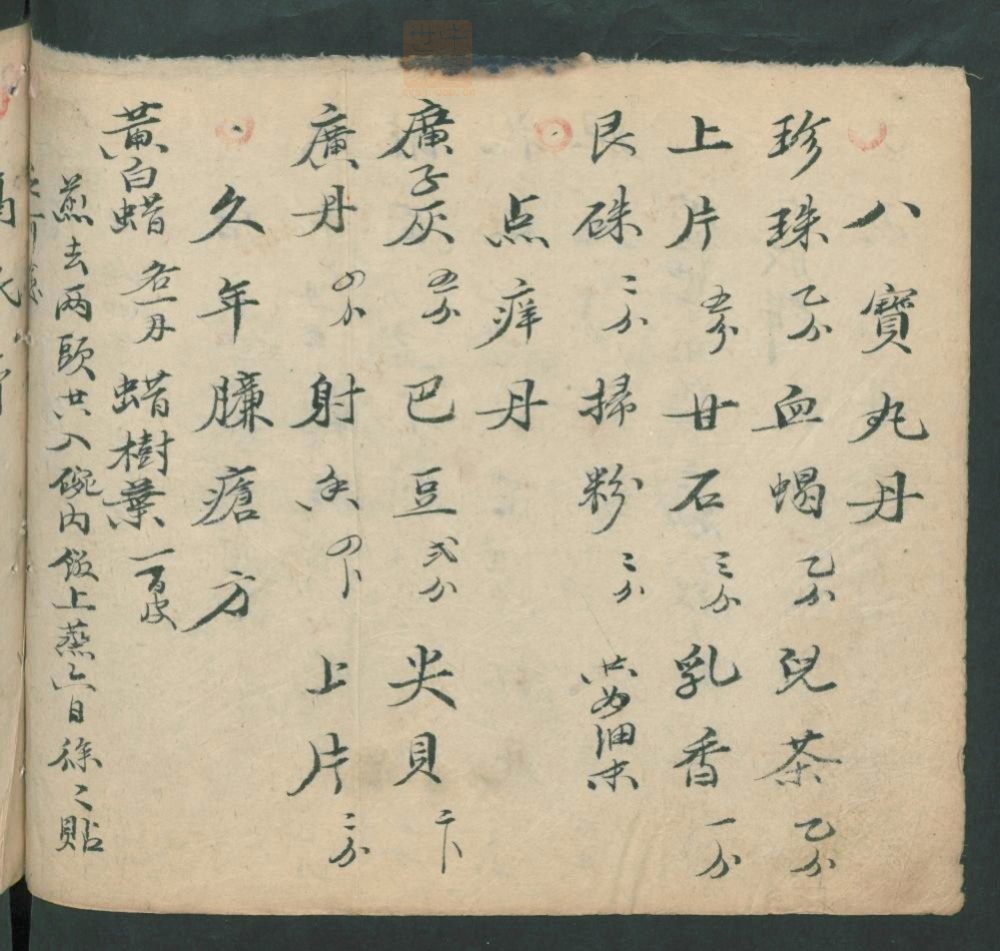 八寶丸丹
珍珠 乙分 血蝎 乙分 兒茶 乙分
上片 五分 甘石 三分 乳香 一分
艮硃 二分 掃粉 三分 共為細末
点痒丹
廣子灰 五分 巴豆 弍分 尖貝 二卜
廣丹 四分 射香 四卜 上片 二分
久年臁瘡方
黃白蜡 各一丹 蜡樹葉 一百皮
煎去两頭共入碗内飯上蒸六日徐〻貼